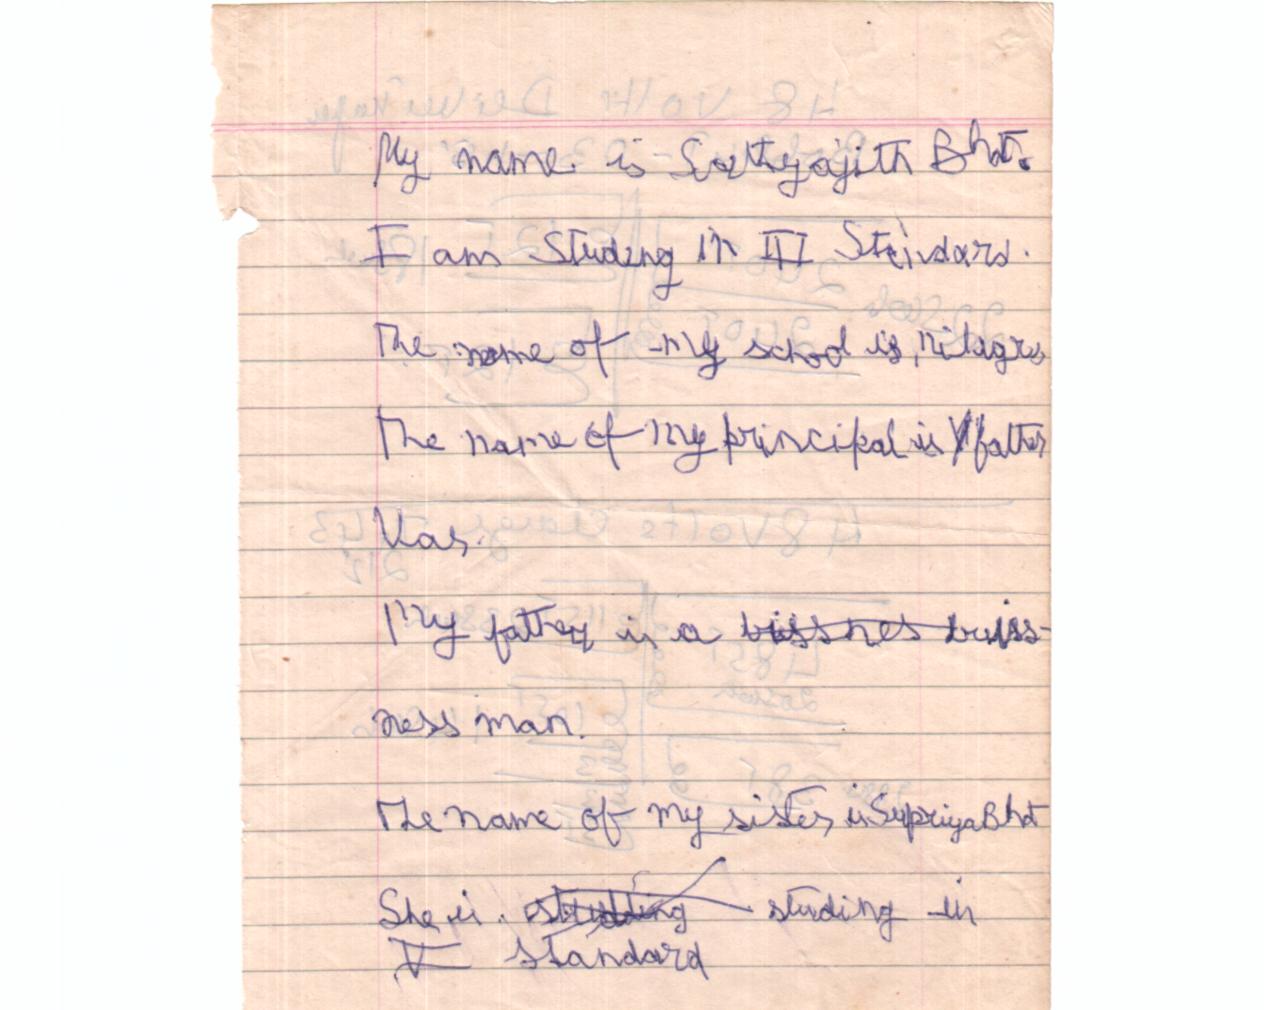 My name is Sathyajith Bhat.
I am Studing in III Standard.
The name of my school is, nilagres
The name of my principal is father
Vas.
My father is a bissnes buiss-
ness man.
The name of my sister is Supriya Bhat
She is. studding studing in
V standard